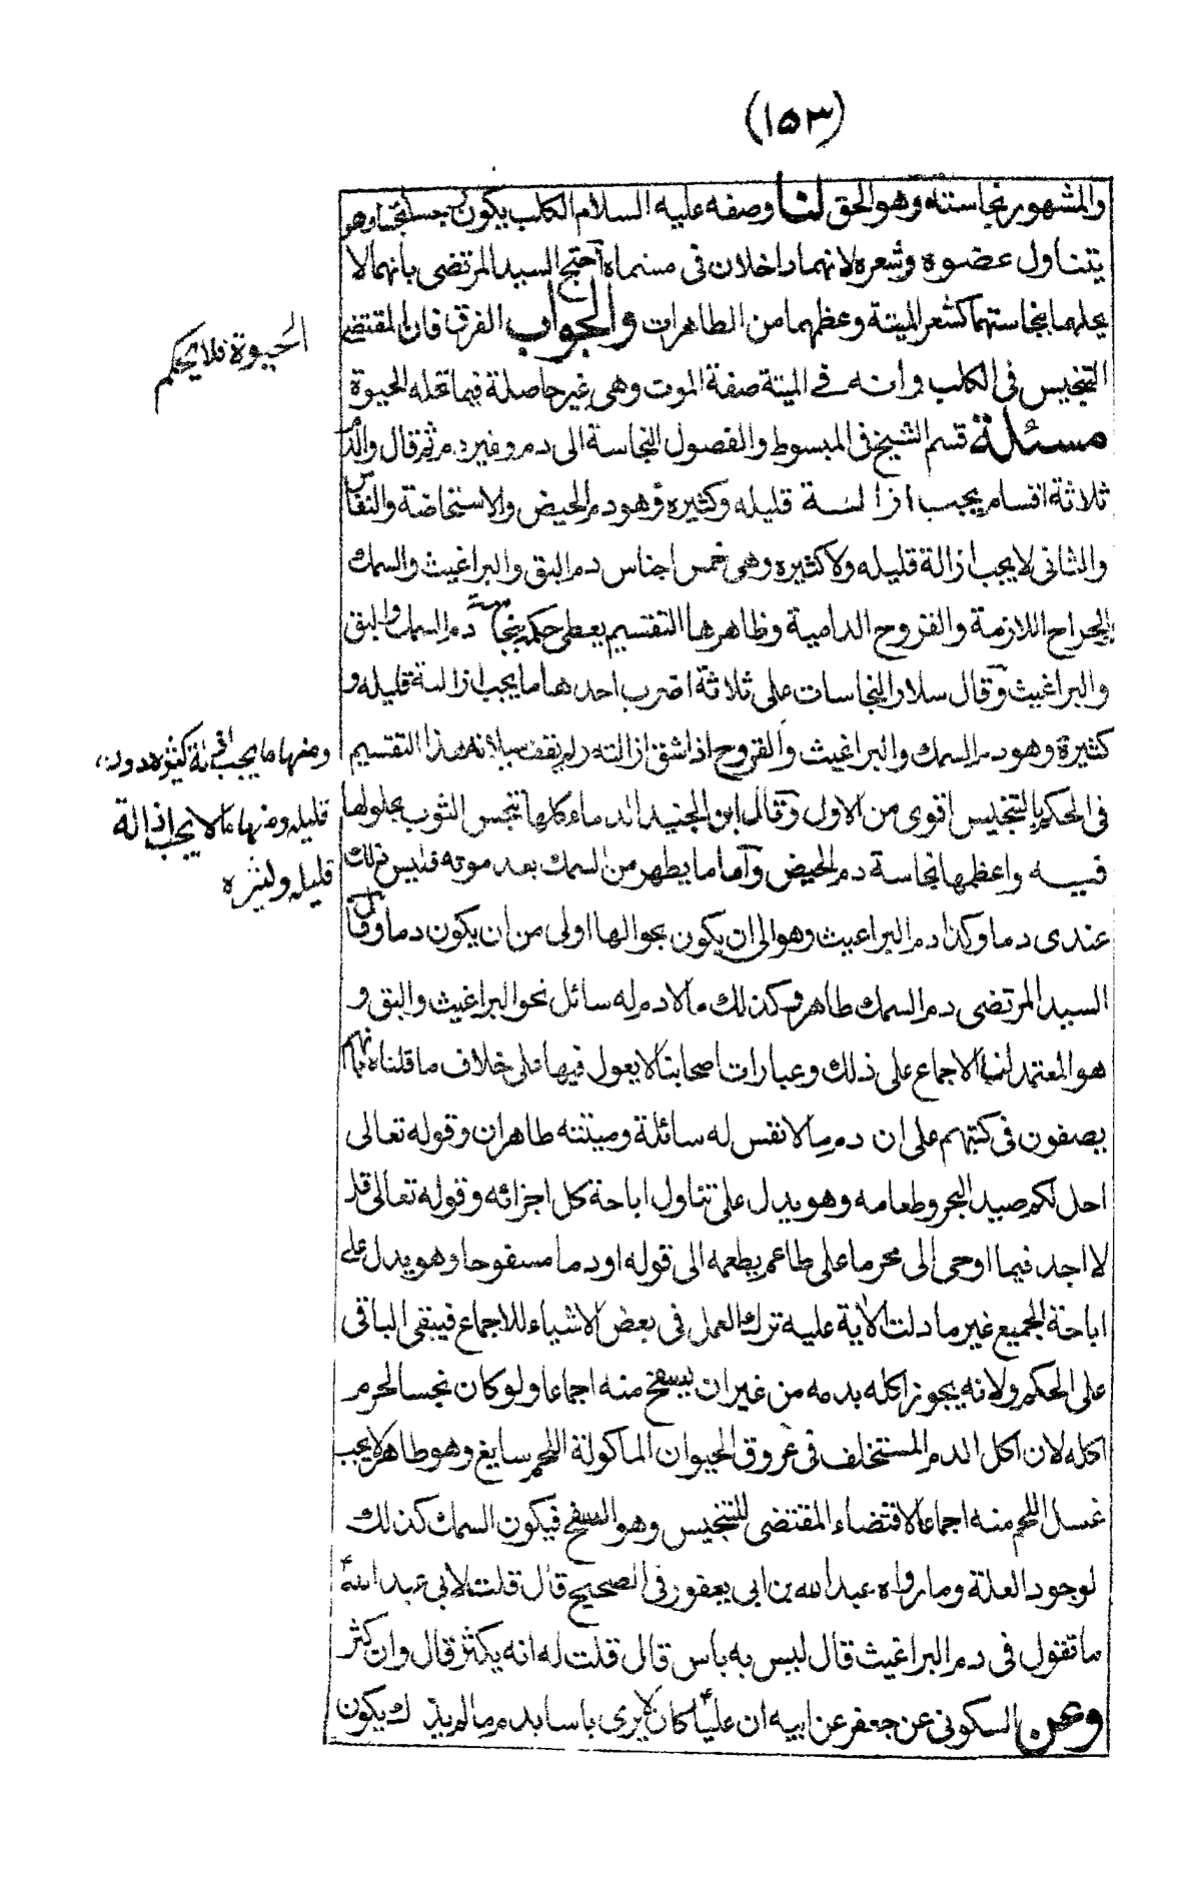 (١٥٣)
والمشهور نجاسته وهو الحق لنا وصفه عليه السلام الكلب بكونه رجس نجسا وهو
يتناول عضوه وشعره لانهما داخلان فى مسماه احتج السيد المرتضى بانهما لا
يحلهما نجاستهما كشعر الميتة وعظمهما من الطاهرات والجواب الفرق فان المقتضى
الحيوة فلا يحكم
التنجيس فى الكلب ذاته فى الميتة صفة الموت وهى غير حاصلة فيما تحله الحيوة
مسئلة قسم الشيخ فى المبسوط والفصول النجاسة الى دم وغير دم ثم قال والدم
ثلاثة اقسام يجب ازالـــة قليله وكثيره وهو دم الحيض والاستحاضة والنفاس
والثانى لا يجب ازالة قليله ولا كثيره وهى خمس اجناس دم البق والبراغيث والسمك
والجراح اللازمة والقروح الدامية وظاهر هذا التقسيم يعطى حكمه بنجاسة دم السمك والبق
والبراغيث وقال سلار النجاسات على ثلاثة اضرب احدها ما يجب ازالة قليله و
كثيرة وهو دم السمك والبراغيث والقروح اذا شق ازالته ولم يقف سيلانه هذا التقسيم
ومنها ما يجب ازالة كثيره دون
قليله ومنها ما لا يجب اذالة
قليله وكثيره
فى الحكم بالتنجيس اقوى من الاول وقال ابن الجنيد الدماء كلها تنجس الثوب بحلولها
فيــه واعظمها نجاسة دم الحيض واما ما يظهر من السمك بعد موته فليس ذلك
عندى دما وكذا دم البراغيث وهو الى ان يكون بحوالها اولى من ان يكون دما وقال
السيد المرتضى دم السمك طاهر وكذلك ما لا دم له سائل نحو البراغيث والبق و
هو المعتمد لنا الاجماع على ذلك وعبارات اصحابنا لا يعول فيها على خلاف ما قلناه فانهم
يصفون فى كتبهم على ان دم ما لا نفس له سائلة وميتته طاهران وقوله تعالى
احل لكم صيد البحر وطعامه وهو يدل على تناول اباحة كل اجزائه وقوله تعالى قل
لا اجد فيما اوحى الى محرما على طاعم يطعمه الى قوله او دما مسفوحا وهو يدل على
اباحة الجميع غير ما دلت الاية عليه ترك العمل فى بعض الاشياء للاجماع فيبقى الباقى
على الحكم ولانه يجوز اكله بدمه من غير ان يسفح منه اجماعا ولو كان نجسا لحرم
اكله لان اكل الدم المستخلف فى عروق الحيوان الماكولة اللحم سايغ وهو طاهر لا يجب
غسل اللحم منه اجماعا لاقتضاء المقتضى للتنجيس وهو السفح فيكون السمك كذلك
لوجود العلة وما رواه عبد الله بن ابى يعفور فى الصحيح قال قلت لابى عبد الله ع
ما تقول فى دم البراغيث قال ليس به باس قال قلت له انه يكثر قال وان كثر
وعن السكونى عن جعفر عن ابيه ان عليا ع كان لا يرى باسا بدم ما لم يذك يكون